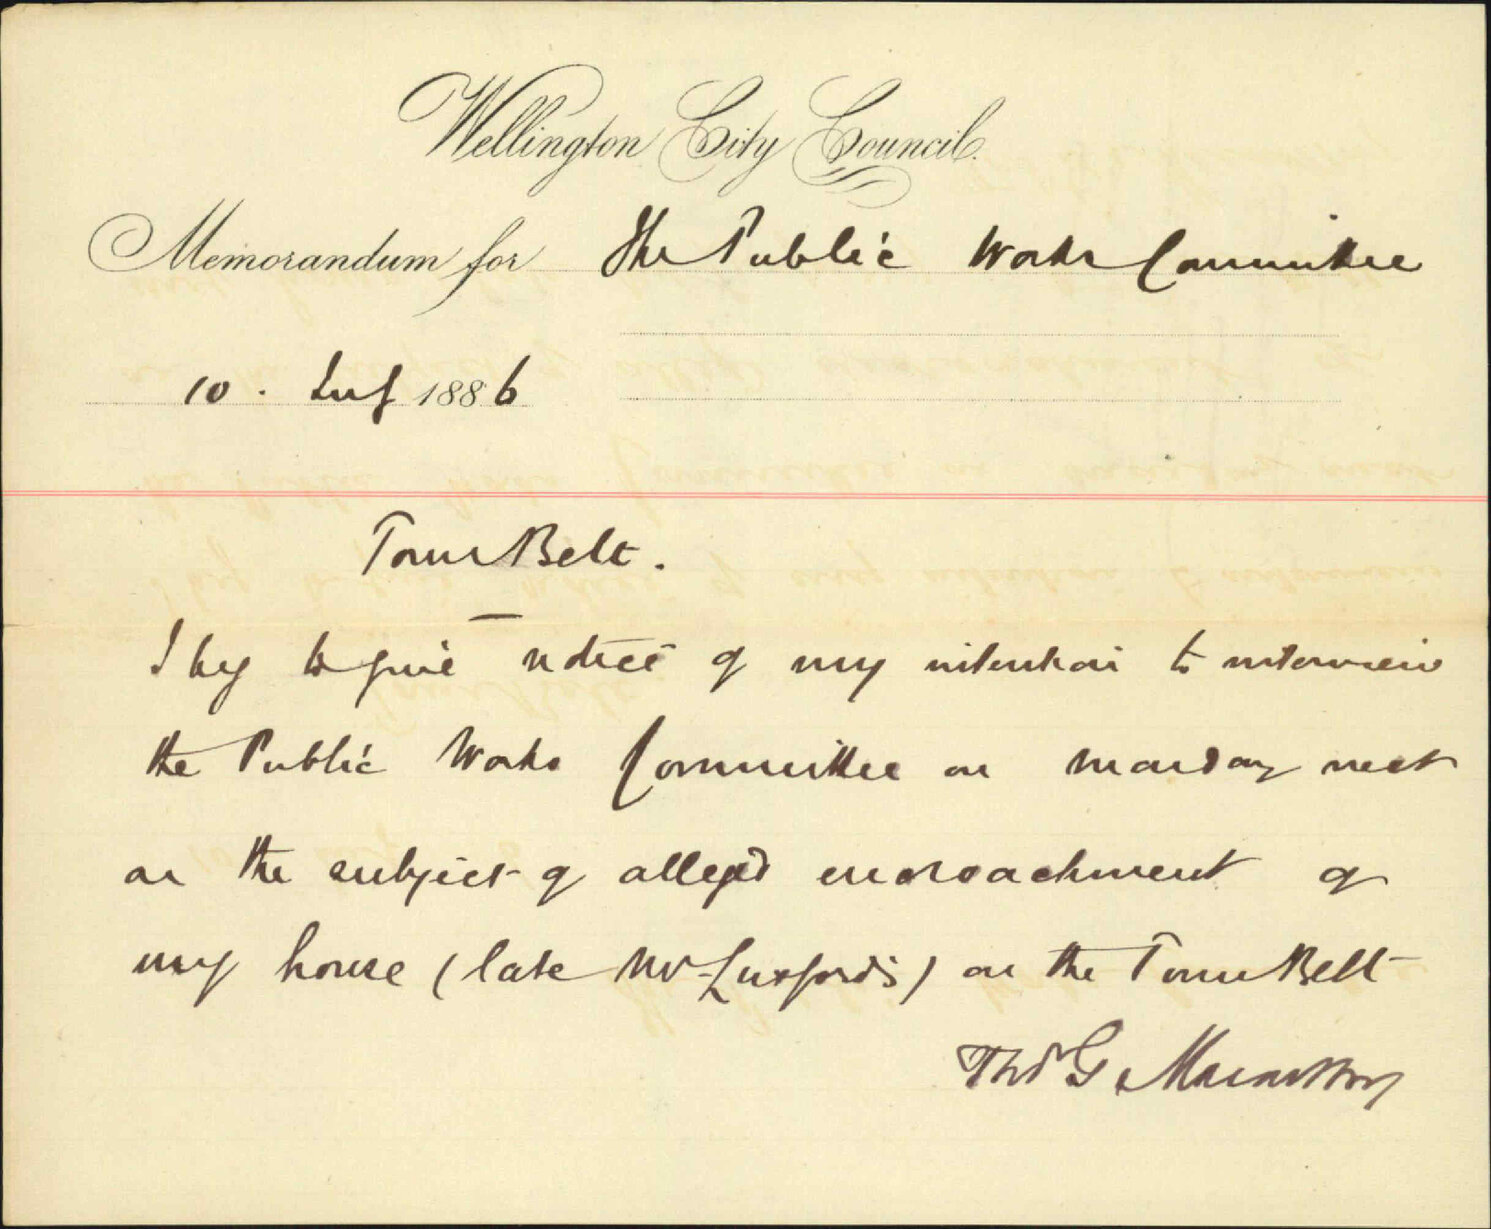 Wellington City Council.
Memorandum for The Public Works Committee
10. July 1886
Town Belt.
I beg to give notice of my intention to interview
the Public Works Committee on Monday next
on the subject of alleged encroachment of
my house (late Mr Luxford's) on the Town Belt
Thos G Macarthy